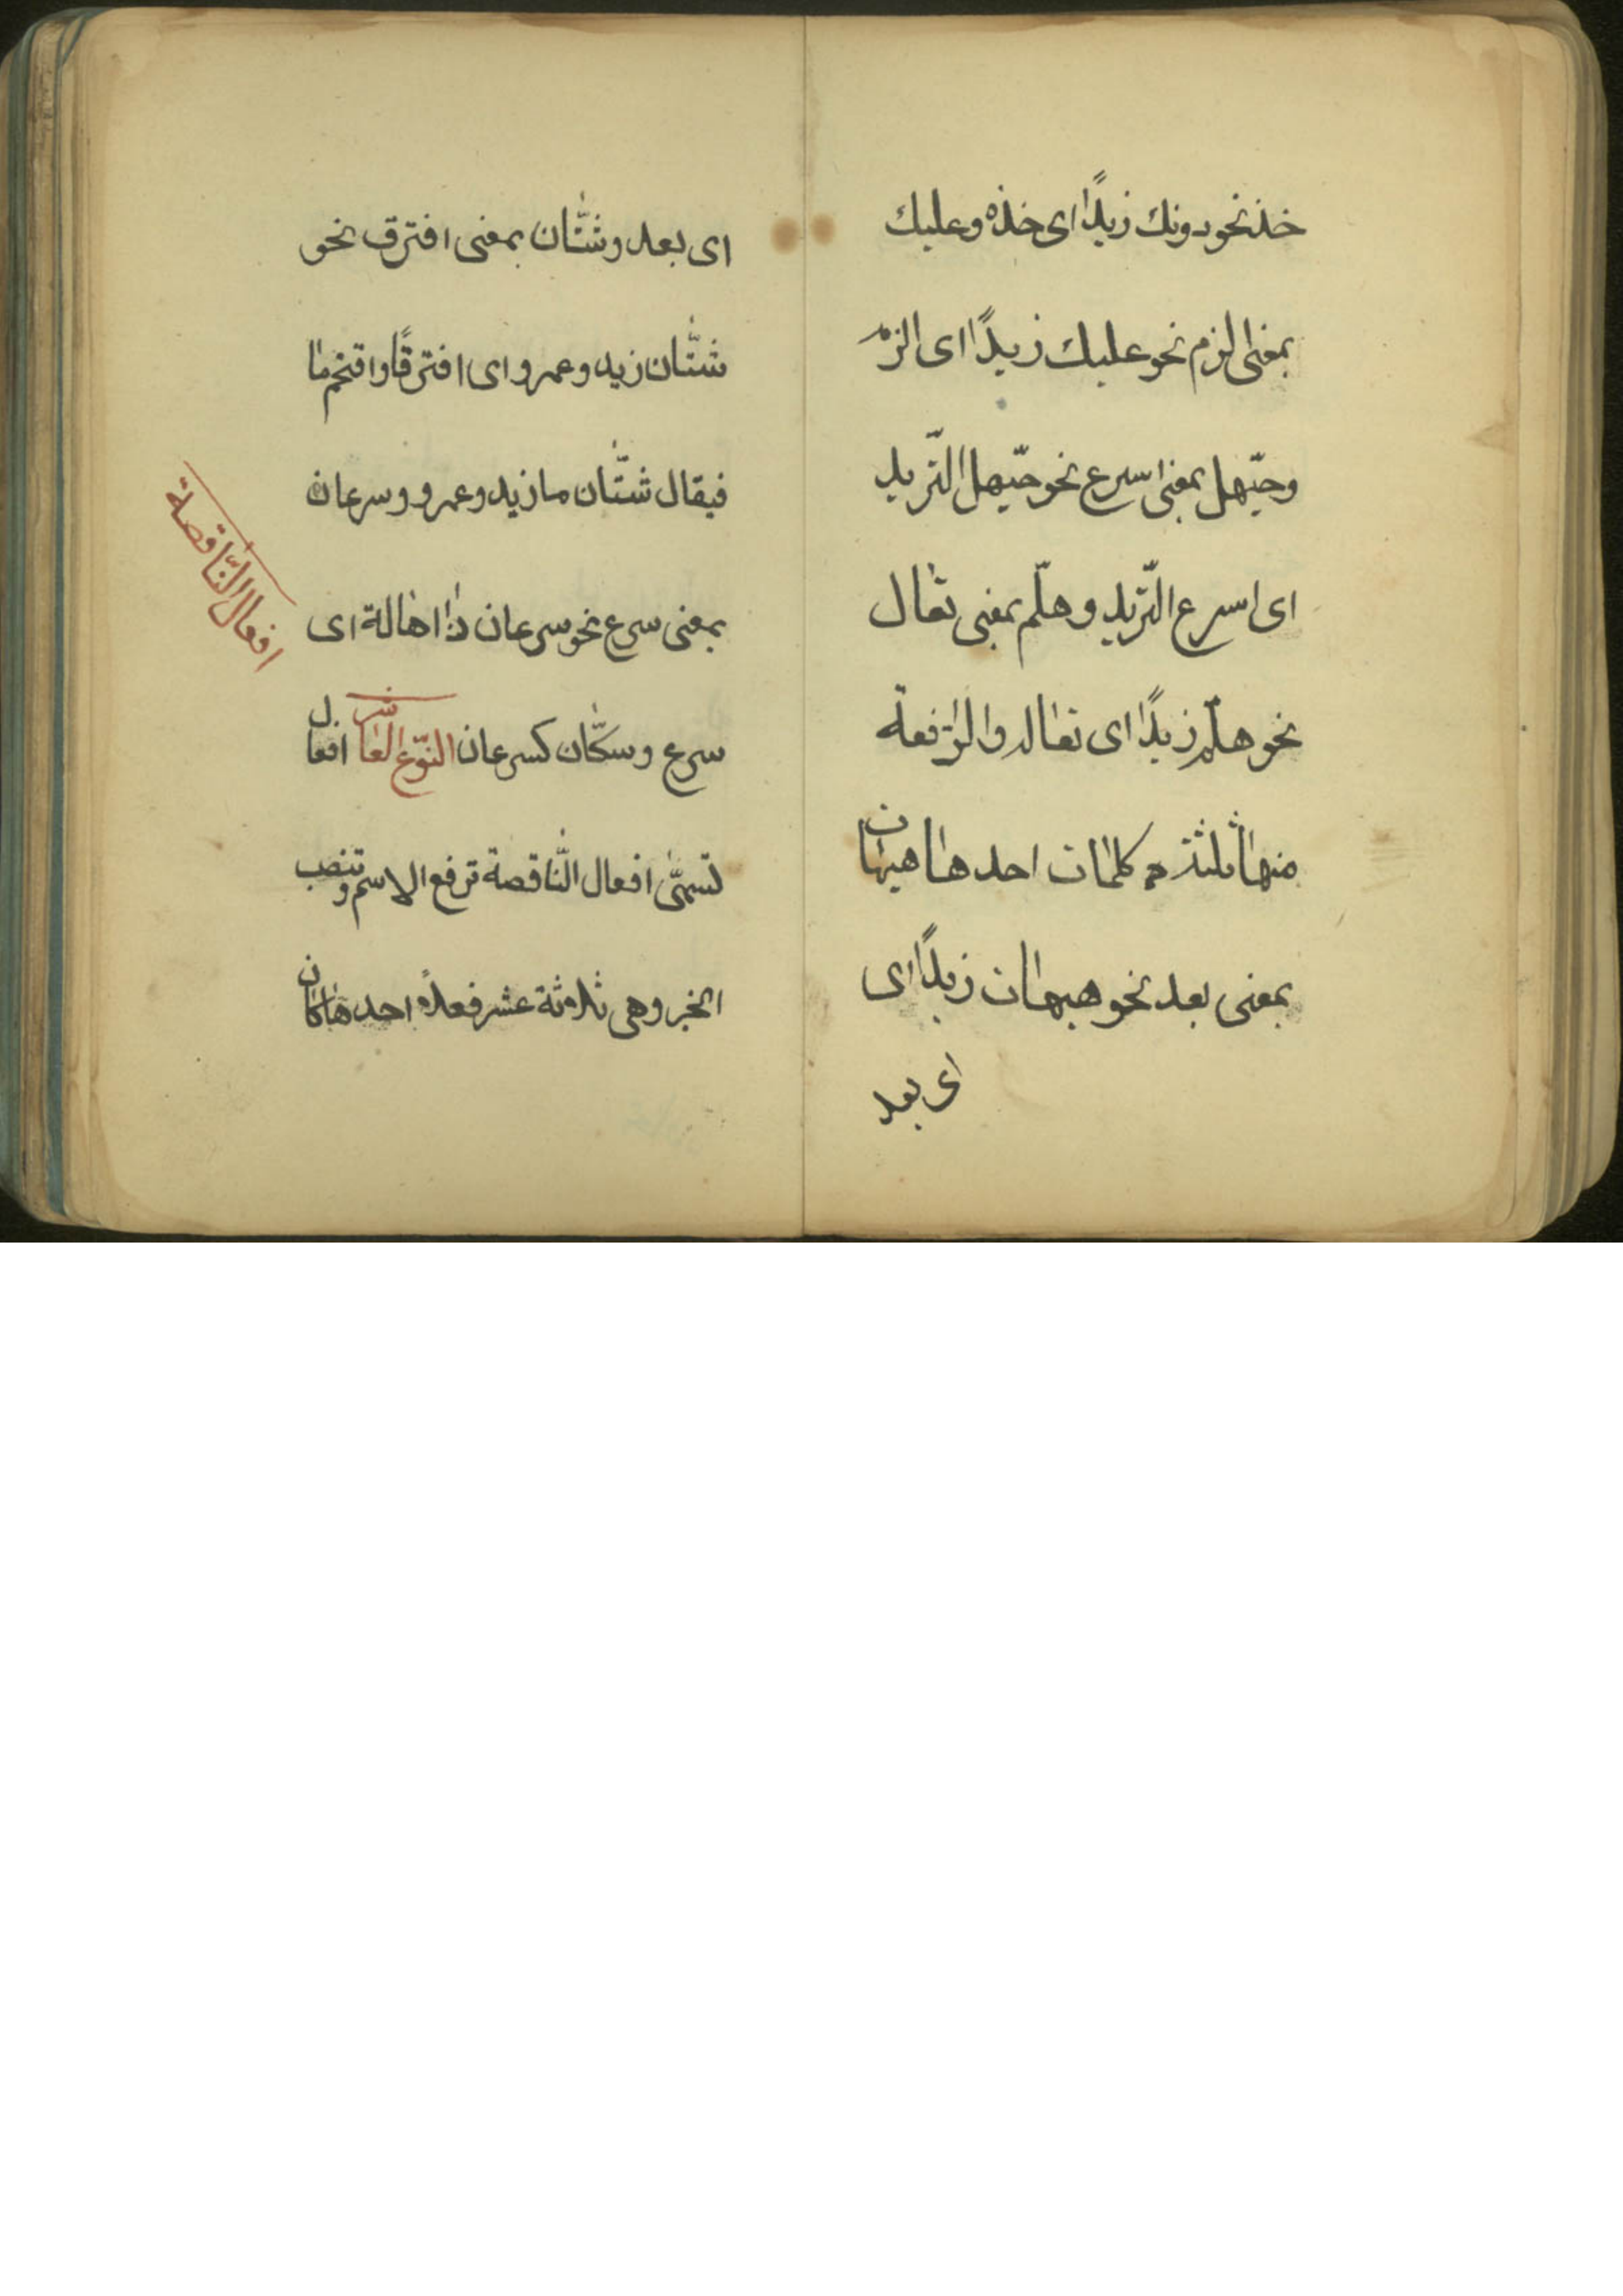 خذ نحو دونك زيدًا اى خذه وعليك
بمعنى الزم نحو عليك زيدًا اى الزمه
وحيّهل بمعنى اسرع نحو حيّهل الثّريد
اى اسرع الثّريد وهلّم بمعنى تعال
نحو هلّم زيدًا اى تعاله والرّافعة
منها ثلثة كلمات احدها هيهات
بمعنى بعد نحو هيهات زيدًا اى
اى بعد
اى بعد وشتّان بمعنى افترق نحو
شتّان زيد وعمرو اى افترقا واقتحم ما
فيقال شتّان ما زيد وعمرو وسرعان
بمعنى سرع نحو سرعان ذا اهالة اى
سرع وسكّان كسرعان النّوع العاشر افعال
تسمّى افعال النّاقصة ترفع الاسم وتنصب
الخبر وهى ثلاثة عشر فعلاً احدها كان
افعال النّاقصة